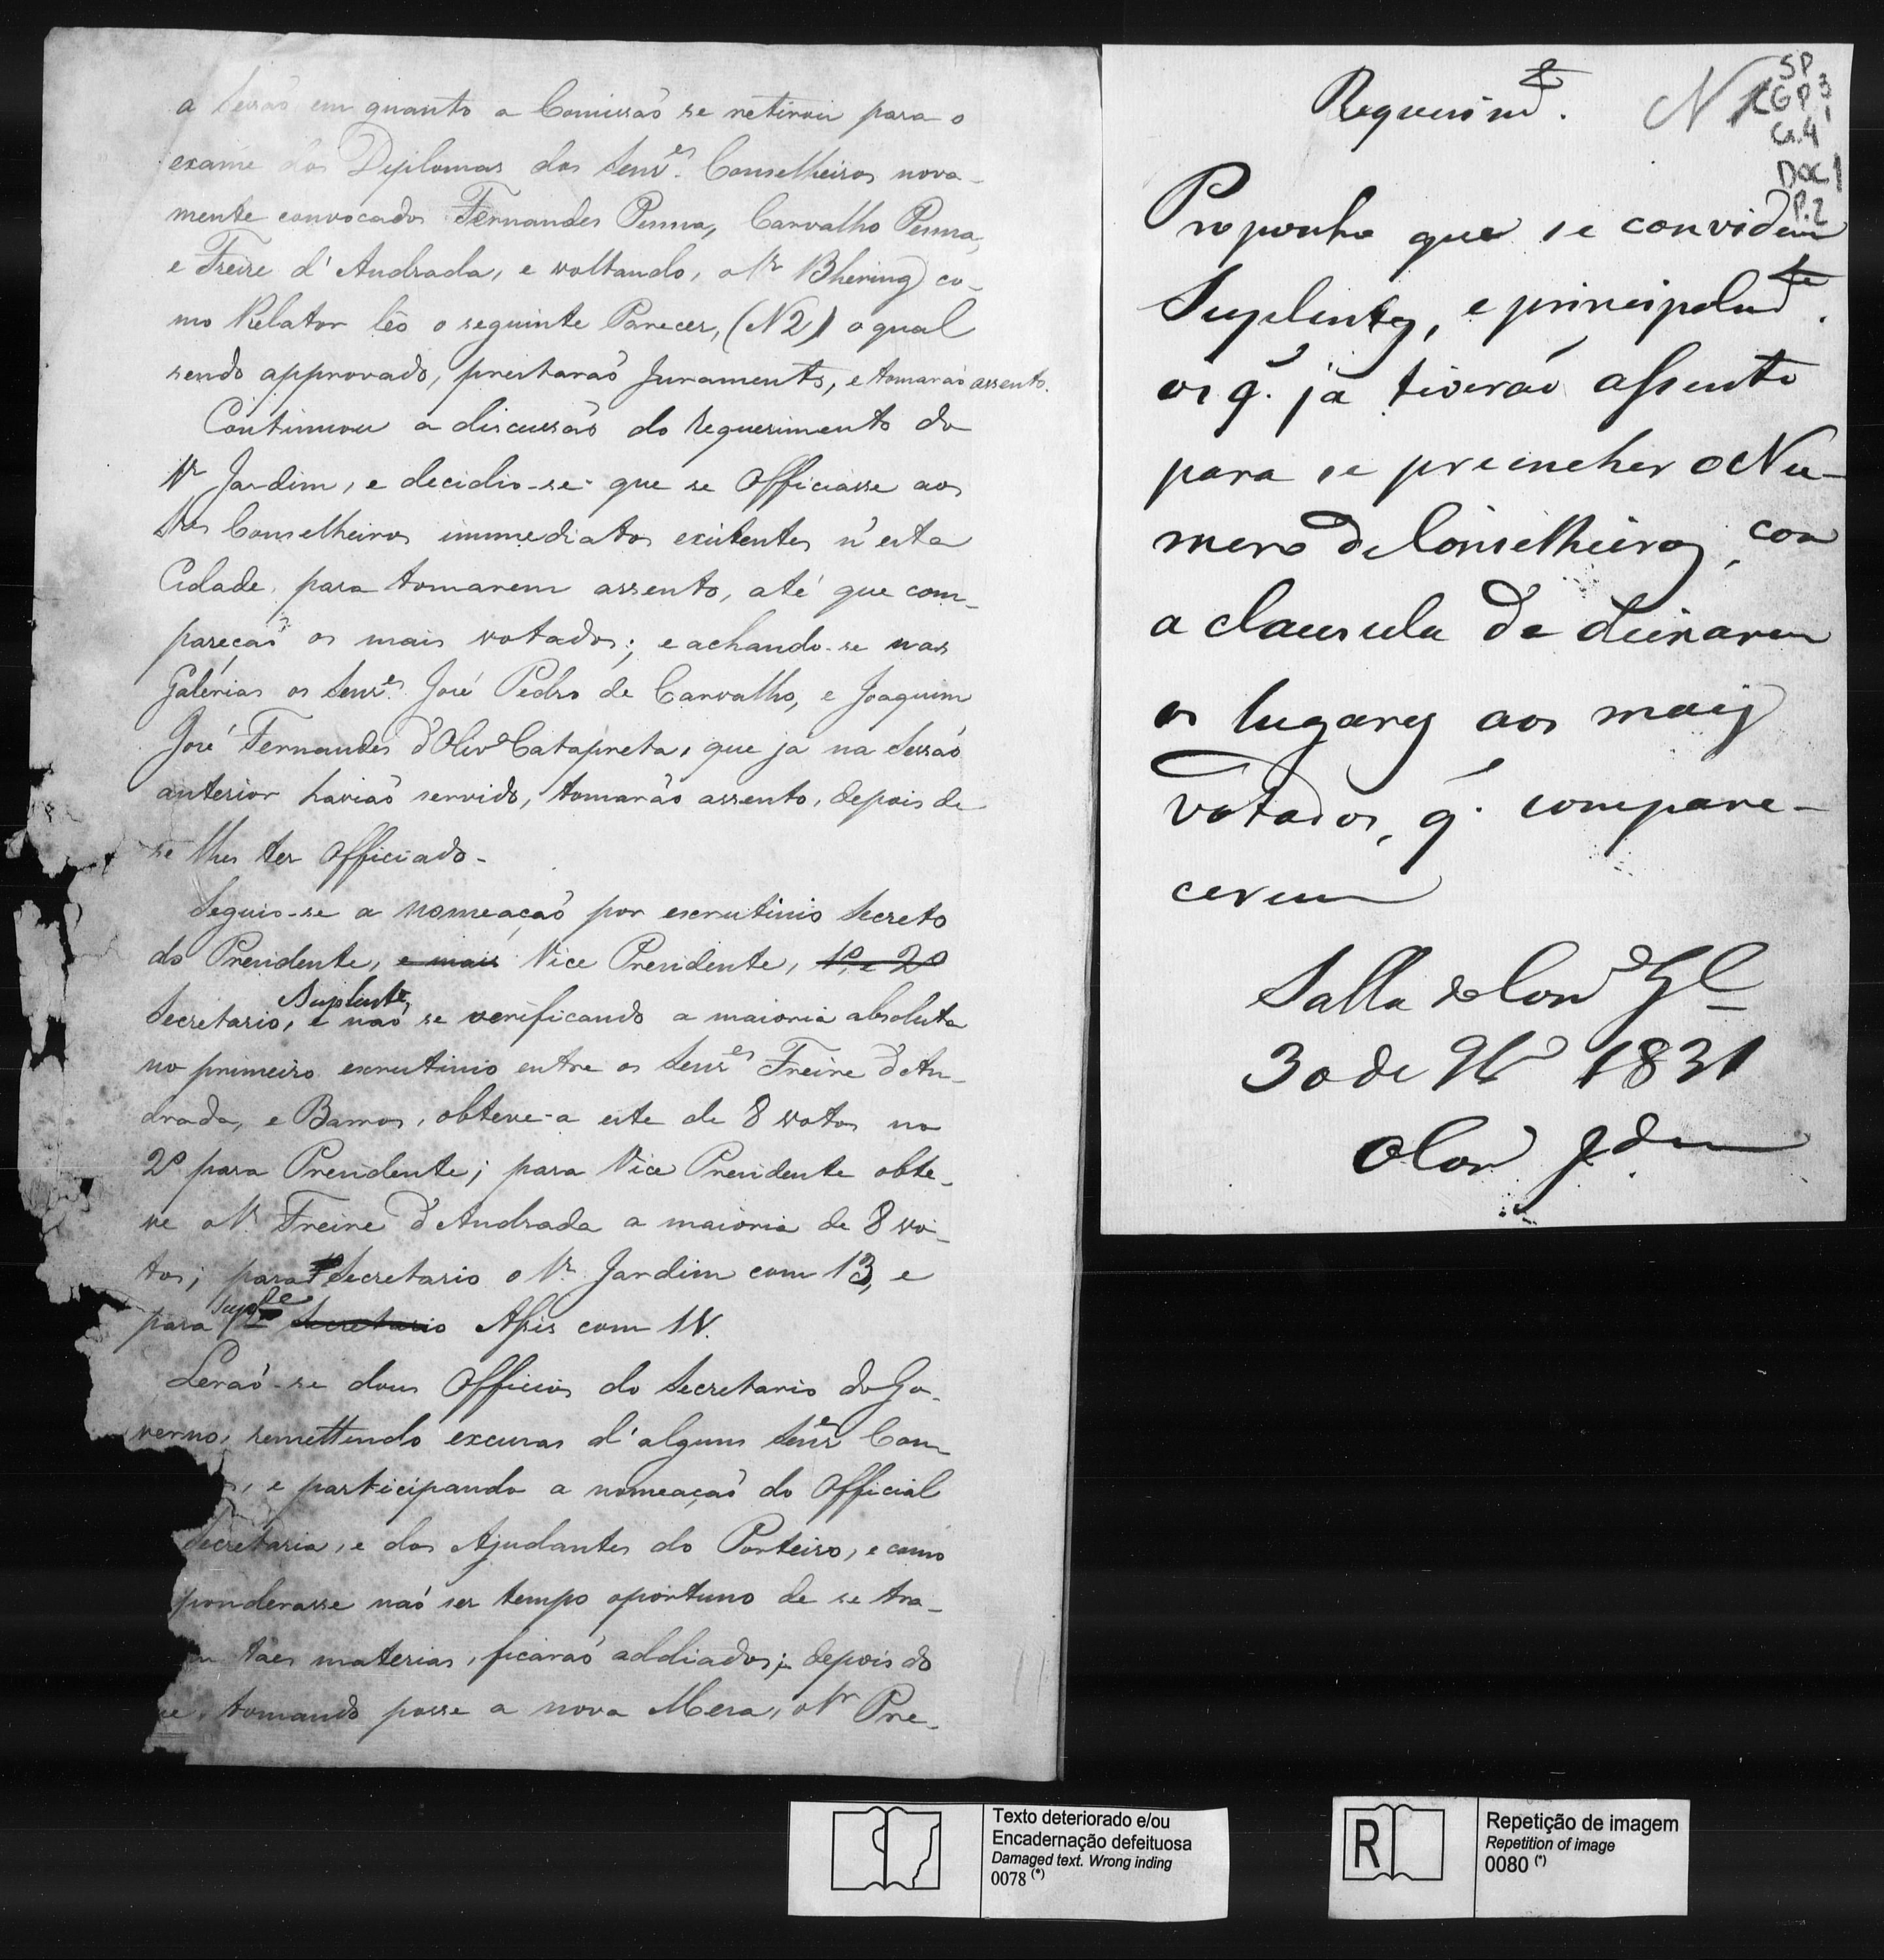 a Sessaõ em quanto a Comissaõ se retirou para o
exame dos Diplomas dos Senr.es Conselheiros nova-
mente convocados Fernandes Penna, Carvalho Penna,
e Freire d'Andrada, e voltando, o Sr. Bhering co-
mo Relator lêo o seguinte Parecer, (N2) o qual
sendo approvado, prestaraõ Juramento, e tomaraõ assento.
Continuou a discussaõ do Requerimento do
Sr. Jardim, e decidio-se que se Officiasse aos
Sres Conselheiros immediatos existentes n'esta
Cidade, para tomarem assento, até que com-
pareçaõ os mais votados; e achando-se nas
Galerias os Senr.es José Pedro de Carvalho, e Joaquim
José Fernandes d'Olivª Catapreta, que já na Sessaõ
anterior haviaõ servido, tomaraõ assento, depois de
se lhes ter Officiado-
Seguio-se a nomeaçaõ por escrutinio Secreto
do Presidente, e mais Vice Presidente, 1º, e 2º
Suplente,
Secretario, e naõ se verificando a maioria absoluta
no primeiro escrutinio entre os Senr.es Freire d'An-
drada, e Barros, obteve-a este de 8 votos no
2º para Presidente; para Vice Presidente obte-
ve o Sr. Freire d'Andrada a maioria de 8 vo-
tos; para Secretario o Sr. Jardim com 13, e
Suple
para Secretario Assis com 11.
Leraõ-se dous Officios do Secretario do Go-
verno, remettendo excusas d'alguns Senr.es Con-
, e participando a nomeaçaõ do Official
Secretaria, e dos Ajudantes do Porteiro, e como
ponderasse naõ ser tempo oportuno de se tra-
taes materias, ficaraõ addiados; depois do
que, tomando posse a nova Mesa, o Sr Pre-
Requerimto.
N 1
SP
CGP 3
Cx.4
DOC 1
P.2
Proponho que se convidem
Suplentes, e principalmte.
os q. já tiveraõ assento
para se preencher o Nu-
mero de Conselheiros, con
a clausula de deixarem
os lugares aos mais
votados, q. compare-
cerem
Salla do Conº Gl
30 de 9bro 1831
O Con. Jdm
Texto deteriorado e/ou
Encadernação defeituosa
Damaged text. Wrong inding
0078 (*)
R
Repetição de imagem
Repetition of image
0080 (*)